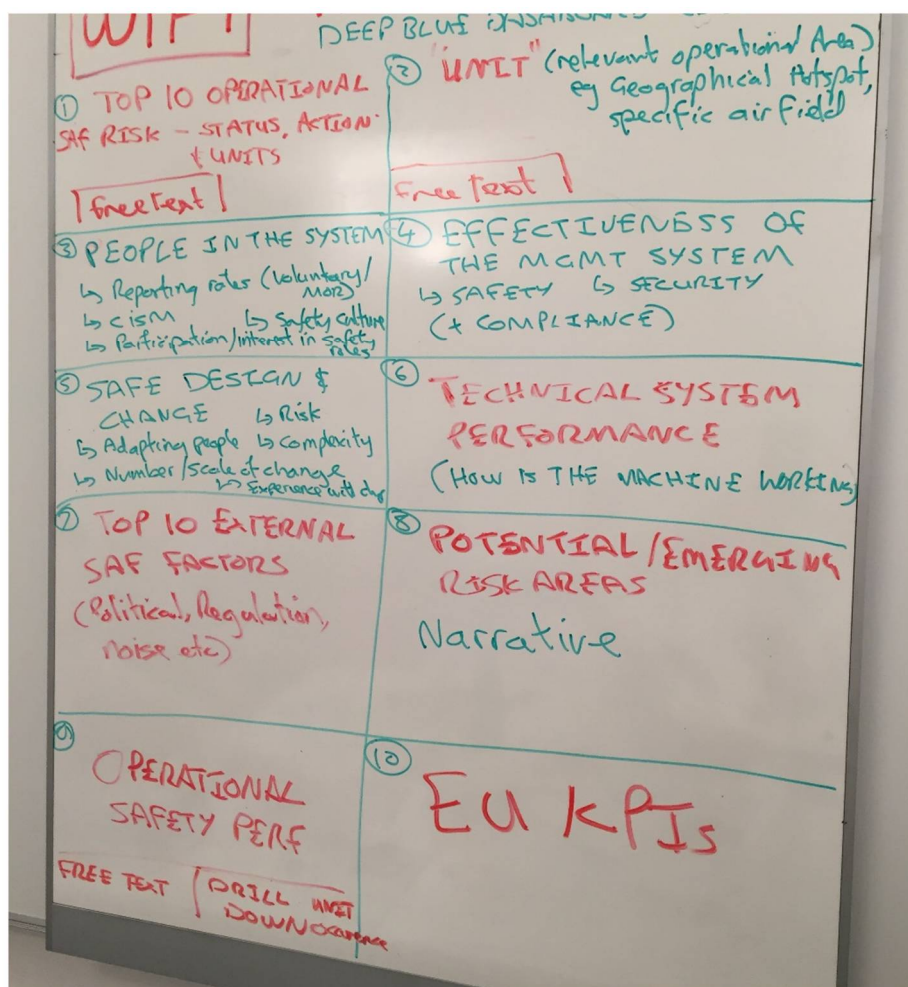 WIFI
DEEP BLUE
① TOP 10 OPERATIONAL
SAF RISK - STATUS, ACTION
+ UNITS
freetext
② "UNIT" (relevant operational Area)
eg Geographical Hotspot,
specific airfield
free text
③ PEOPLE IN THE SYSTEM
↳ Reporting rates (Voluntary/
MOR)
↳ CISM ↳ Safety culture
↳ Participation/interest in safety
roles
④ EFFECTIVENESS OF
THE MGMT SYSTEM
↳ SAFETY ↳ SECURITY
(+ COMPLIANCE)
⑤ SAFE DESIGN &
CHANGE ↳ Risk
↳ Adapting people ↳ Complexity
↳ Number/Scale of change
↳ Experience with chg
⑥ TECHNICAL SYSTEM
PERFORMANCE
(HOW IS THE MACHINE WORKING)
⑦ TOP 10 EXTERNAL
SAF FACTORS
(Political, Regulation,
noise etc)
⑧ POTENTIAL/EMERGING
RISK AREAS
Narrative
⑨ OPERATIONAL
SAFETY PERF
FREE TEXT DRILL UNIT
DOWN Occurence
⑩ EU KPIs